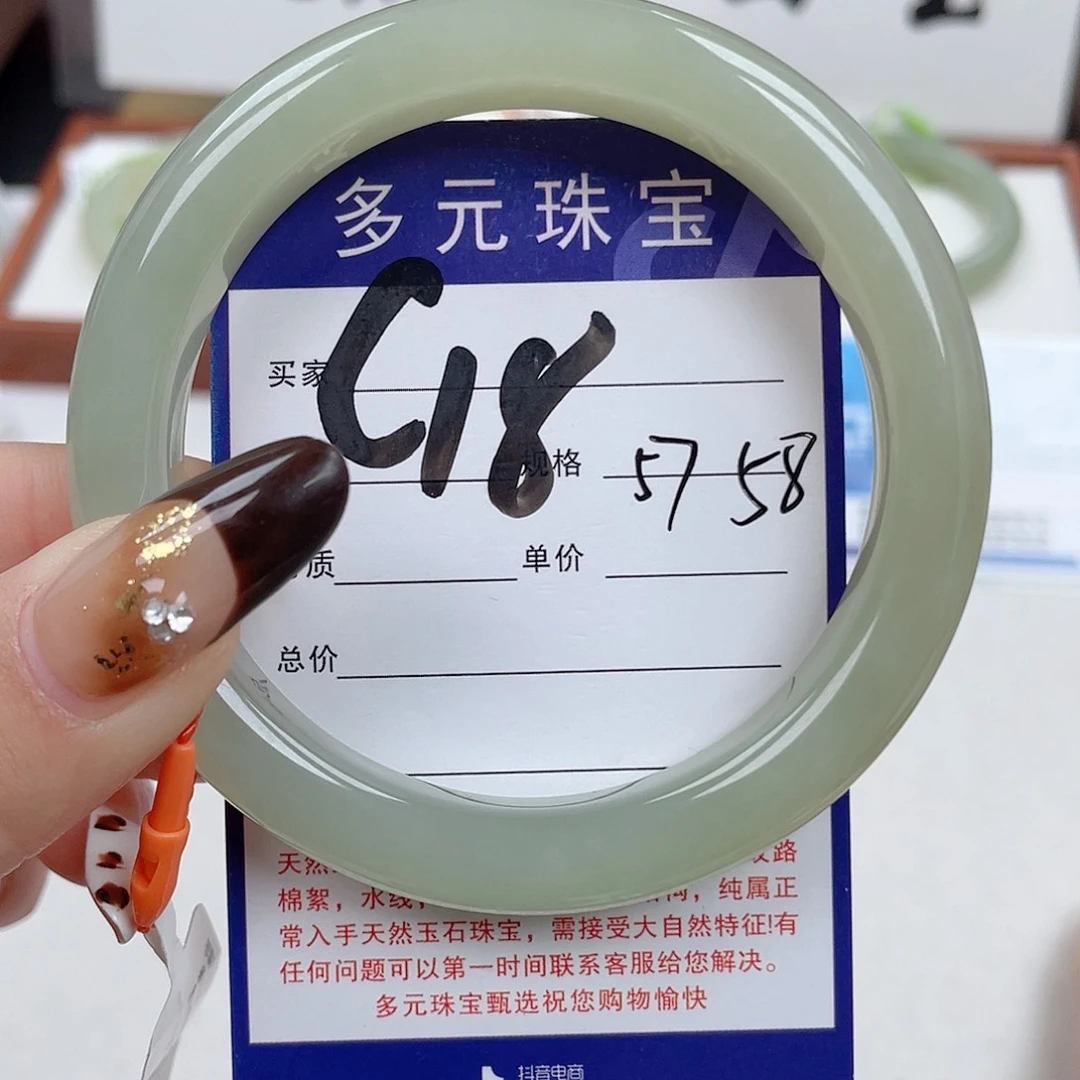 多元珠宝
买家 C18
规格 57 58
质 单价
总价
天然 纹路
棉絮，水线， 纯属正
常入手天然玉石珠宝，需接受大自然特征!有
任何问题可以第一时间联系客服给您解决。
多元珠宝甄选祝您购物愉快
抖音电商